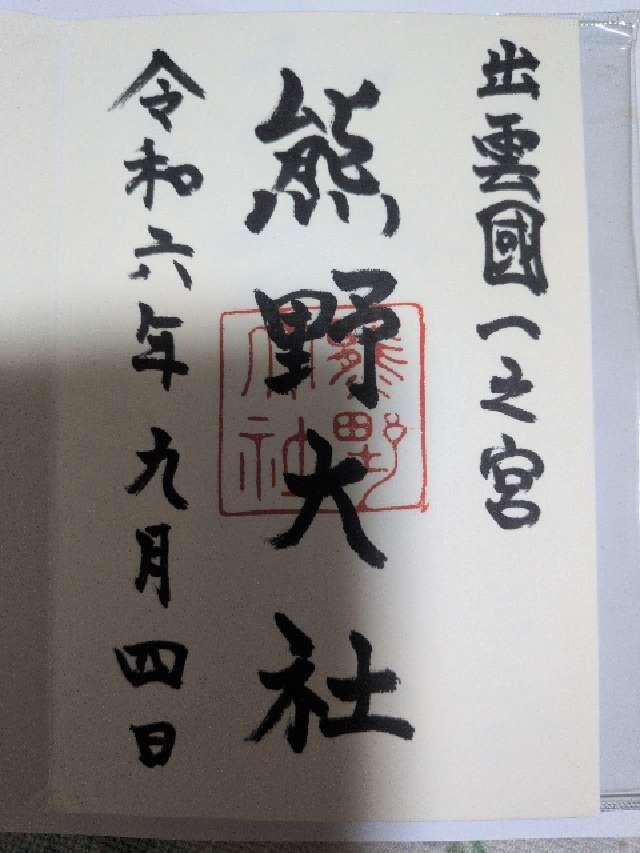 出雲國一之宮
熊野大社
熊野
大社
令和六年九月四日